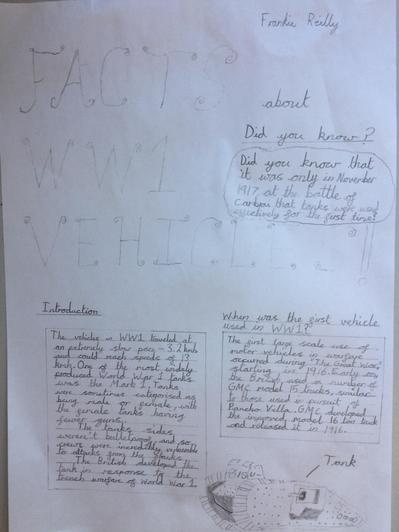 Frankie Reilly
FACTS
about
WW1
VEHICLES!!
Did you know?
Did you know that
it was only in November
1917 at the battle of
that tanks were used
effectively for the first time?
Introduction
The vehicles in WW1 traveled at
an extremely slow pace - 3.2 kmh
and could reach speeds of 13
kmh. One of the most widely
produced World War 1 tanks
was the Mark 1. Tanks
were sometimes categorised as
being male or female, with
the female tanks having
fewer guns.
The tanks sides
weren't bulletproof, and so
crews were incredibly vulnerable
to attacks from the flanks.
The British developed the
tank in response to the
trench warfare of World War 1.
When was the first vehicle
used in WW1?
The first large scale use of
motor vehicles in warfare
occurred during "The Great War"
starting in 1916. Early on,
the British used a number of
GMC model 15 trucks, similar
to those used in pursuit of
Pancho Villa. GMC developed
the improved model 16 ton tank
and released it in 1916.
Tank